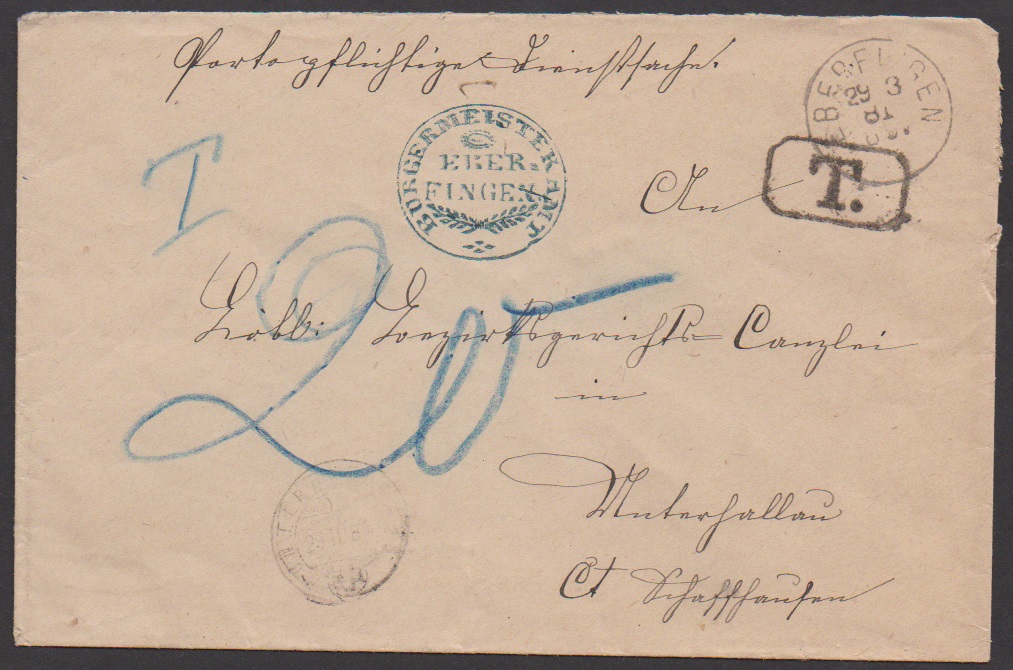 Portopflichtige Dienstsache.
EBERFINGEN
29 3
81
BÜRGERMEISTERAMT
EBER-
FINGEN
T.
I
An
20
Löbl: Bezirksgerichts=Canzlei
in
Unterhallau
Ct Schaffhausen